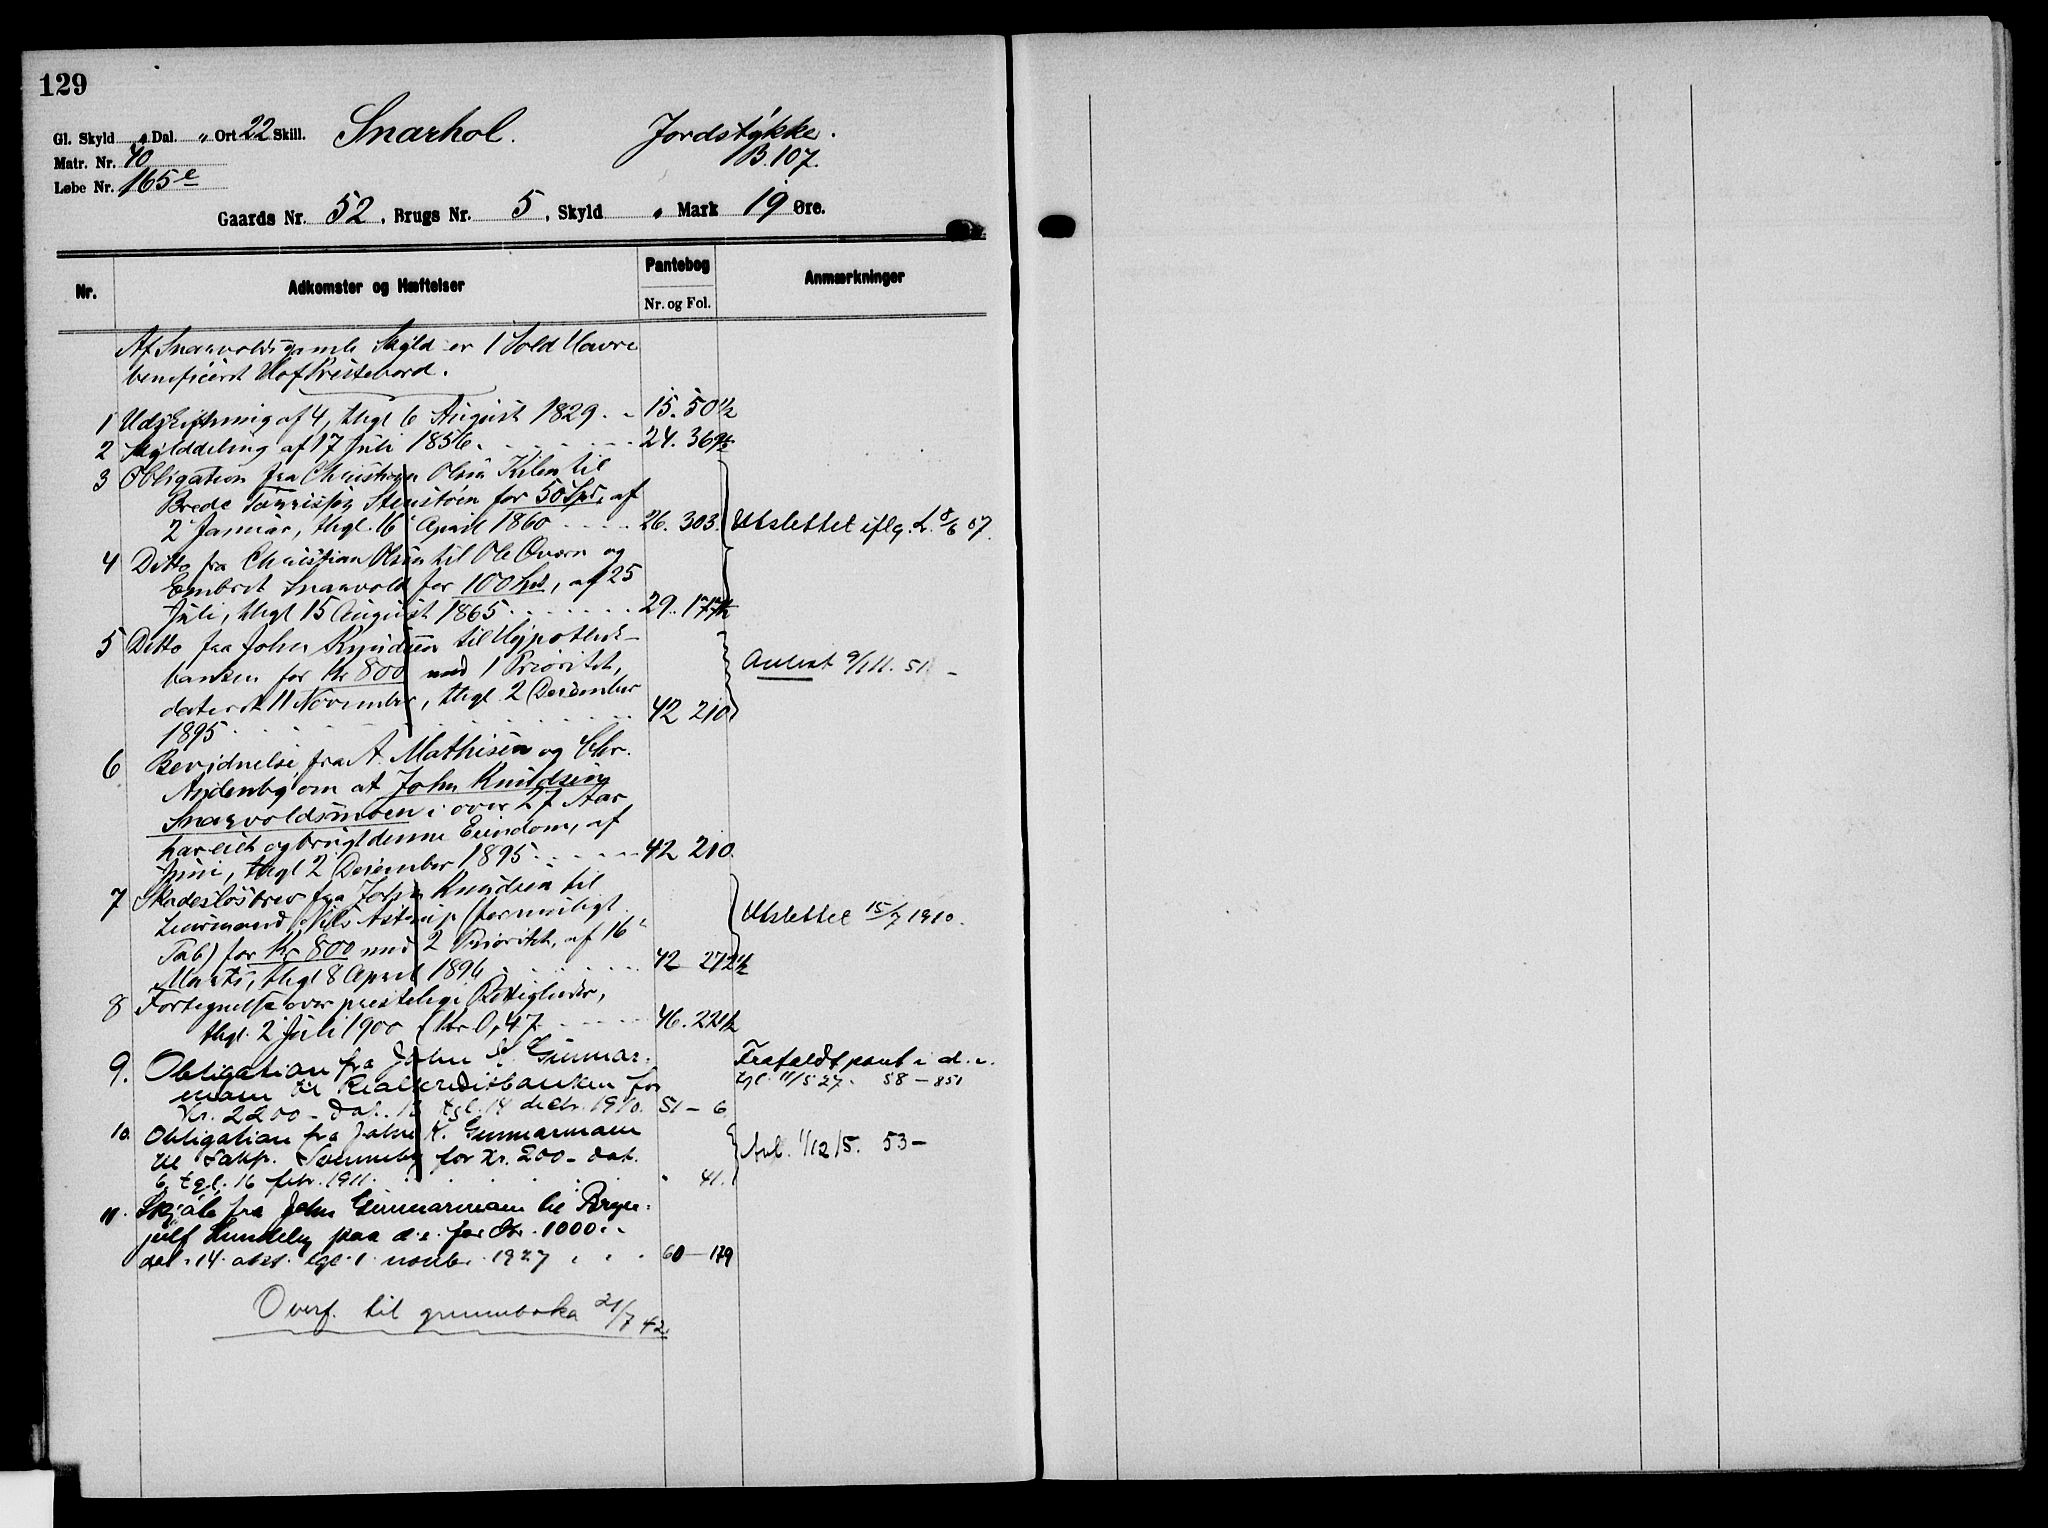 129
Gl. Skyld „ Dal. „ Ort 22 Skill. Snarhol. Jordstykke.
Matr. Nr. 40 B. 107.
Løbe Nr. 165 e
Gaards Nr. 52, Brugs Nr. 5, Skyld „ Mark 19 Øre.
Nr. Adkomster og Hæftelser Pantebog Anmærkninger
Nr. og Fol.
Af Snarvolds gamle Skyld er 1 Sold Havre
beneficeret Hof Prestebord.
1 Udskiftning af 4, thgl 6 August 1829. 15. 50 1/2
2 Skylddeling af 17 Juli 1856. 24. 369 1/2
3 Obligation fra Christian Olsen Kilen til
Brede Stenstøen for 50 Spd, af
2 Januar, thgl. 16 April 1860 26. 303. Utslettet iflg. L. 8/6 07.
4 Ditto fra Christian Olsen til Ole Qværn og
Embret Snarvold for 100 Spd, af 25
Juli, thgl 15 August 1865 29. 177 1/2
5 Ditto fra John Knudsen til Hypothek-
banken for Kr 800 med 1 Prioritet, Avlest 9/11. 51 -
dateret 11 November, thgl. 2 December
1895 42 210
6 Bevidnelse fra A. Mathisen og Chr.
om at John Knudsen
Snarvoldsmoen i over 27 Aar
har eiet og brugt denne Eiendom, af
Juni, thgl 2 December 1895 42 210.
7 Skadesløsbrev fra John Knudsen til
Lensmand Nils Astrup (for muligt Utslettet 15/7 1910.
Tab) for Kr 800 med 2 Prioritet, af 16
Marts, thgl 8 April 1896 42 272 1/2
8 Fortegnelse over prestelige Rettigheder,
thgl. 2 Juli 1900 (Kr 0,47 46. 221 1/2
9. Obligation fra John K. Gunnar- Frafaldt pant i d. e.
moen til Realkreditbanken for tgl. 11/5 27. 58 - 851
Kr. 2200 - dat. 12 tgl. 14 decbr. 1910. 51 - 6
10. Obligation fra John K. Gunnarmoen
til Sakf. Svenneby for Kr. 200 - dat. Avl. 1/12 15. 53 -
6, tgl. 16 febr. 1911. " 41.
11. Skjøte fra John Gunnarmoen til Brynjulf Lundeby paa d. e. for Kr. 1000.
dat. 14. okt. tgl. 1. novbr. 1927 60 - 179
Overf. til grunnboka 21/7 42